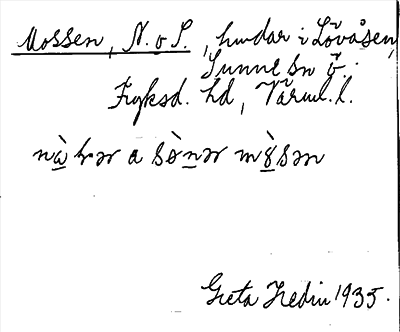 Mossen, N. o S., hudar i Lövåsen,
Sunne sn ö.
Fryksd. hd, Värml. l.
nὰ hər a sὸnər mὸsən
Greta Hedin 1935.